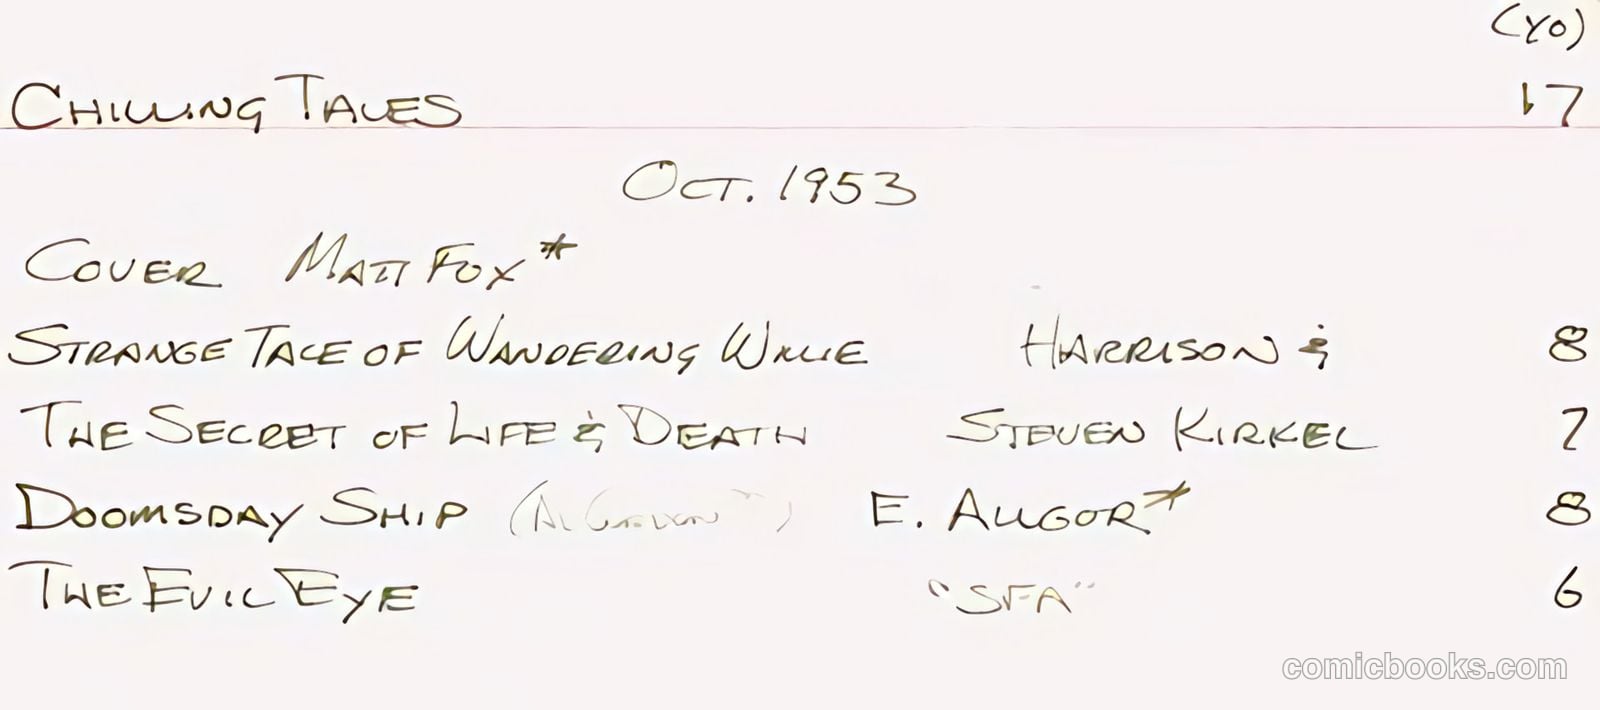 (YO)
CHILLING TALES 17
OCT. 1953
COVER MATT FOX*
STRANGE TALE OF WANDERING WILLIE HARRISON & 8
THE SECRET OF LIFE & DEATH STEVEN KIRKEL 7
DOOMSDAY SHIP (AL *) E. AUGOR* 8
THE EVIL EYE "SFA" 6
comicbooks.com